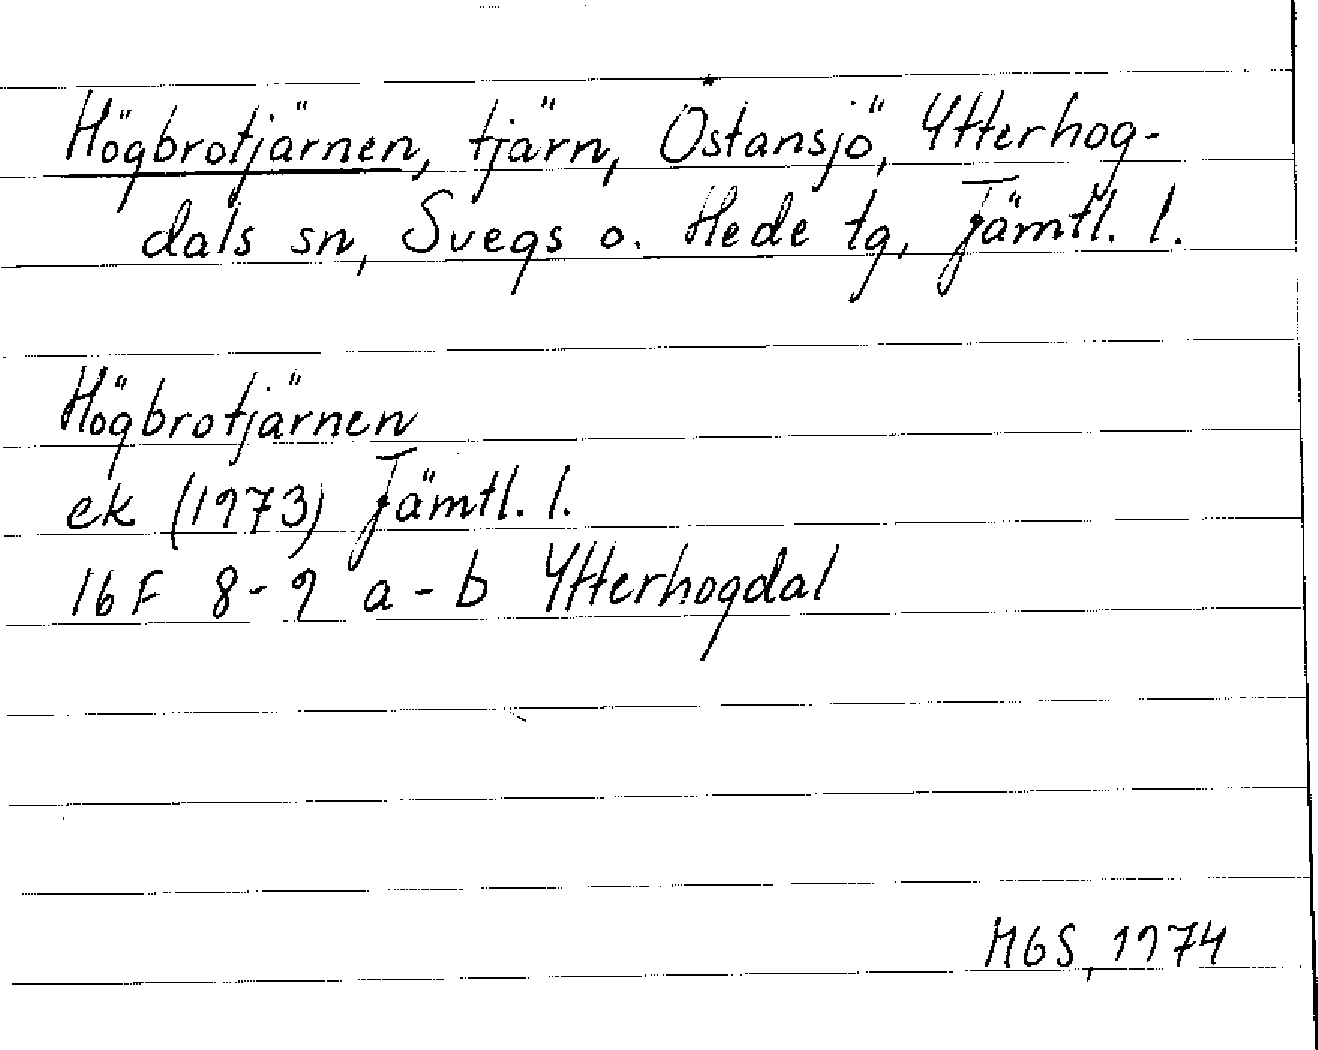 Högbrotjärnen, tjärn, Östansjö, Ytterhog-
dals sn, Svegs o. Hede tg, Jämtl. l.
Högbrotjärnen
ek (1973) Jämtl. l.
16F 8-9 a-b Ytterhogdal
MGS, 1974